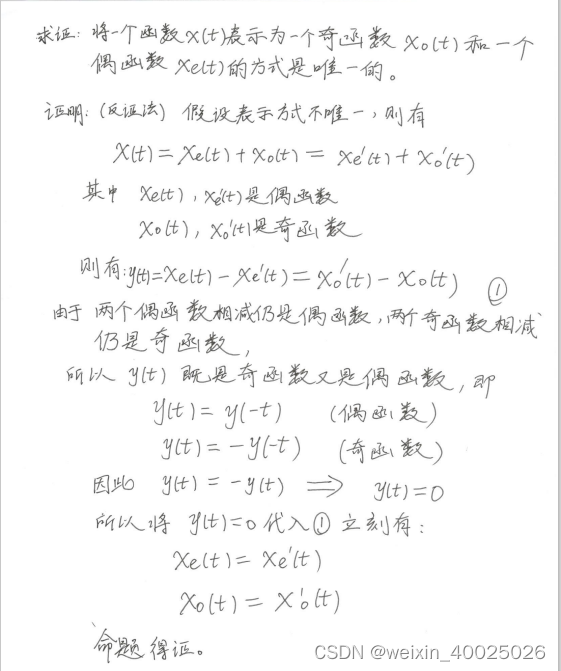 求证: 将一个函数x(t)表示为一个奇函数 Xo(t) 和一个
偶函数 Xe(t)的方式是唯一的。
证明: (反证法) 假设表示方式不唯一, 则有
X(t) = Xe(t) + Xo(t) = Xe'(t) + Xo'(t)
其中 Xe(t), Xe'(t)是偶函数
Xo(t), Xo'(t)是奇函数
则有: y(t)=Xe(t) - Xe'(t) = Xo'(t) - Xo(t) ①
由于 两个偶函数相减仍是偶函数, 两个奇函数相减
仍是奇函数,
所以 y(t) 既是奇函数又是偶函数, 即
y(t) = y(-t) (偶函数)
y(t) = -y(-t) (奇函数)
因此 y(t) = -y(t) ⟹ y(t)=0
所以将 y(t)=0 代入① 立刻有:
Xe(t) = Xe'(t)
Xo(t) = Xo'(t)
命题得证。
CSDN @weixin_40025026